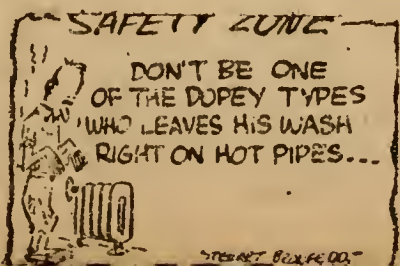 SAFETY ZONE
DON'T BE ONE
OF THE DOPEY TYPES
WHO LEAVES HIS WASH
RIGHT ON HOT PIPES...